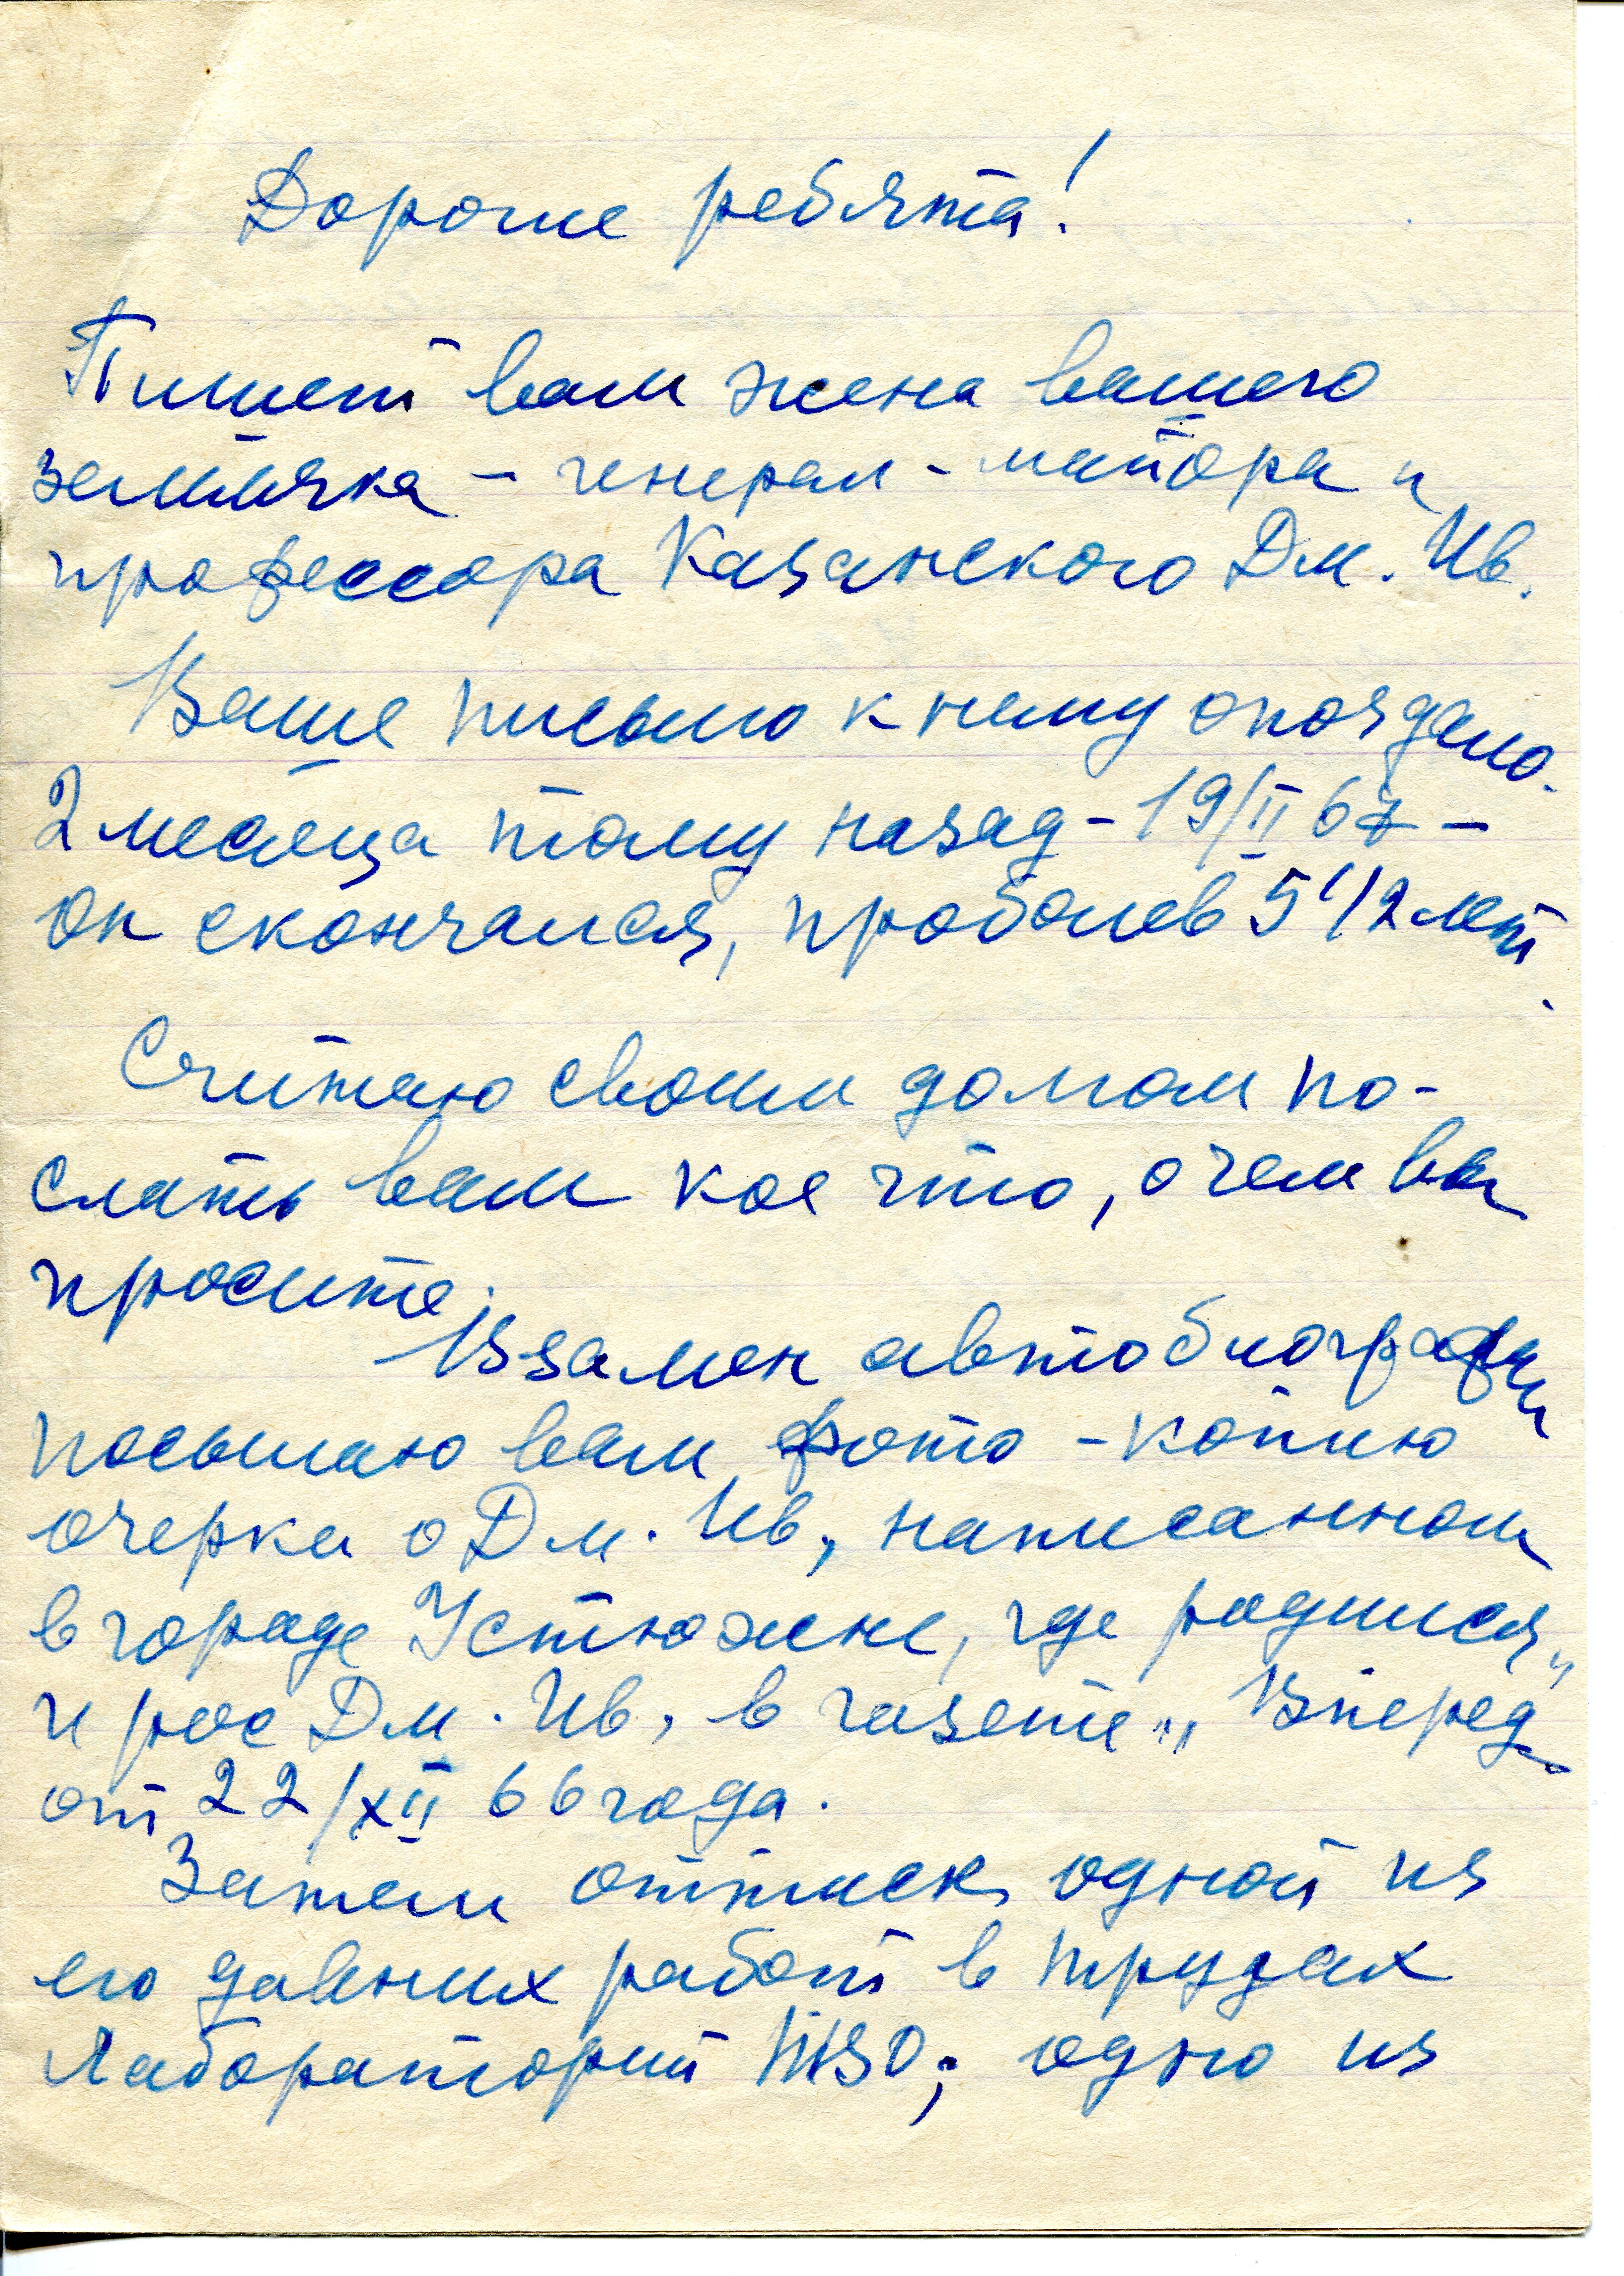 Дорогие ребята!
Пишет вам жена вашего
земляка – генерал-майора и
профессора Казанского Дм. Ив.
Ваше письмо к нему опоздало.
2 месяца тому назад – 19/II 67 –
он скончался, проболев 5 1/2 лет.
Считаю своим долгом по-
слать вам кое что, о чем вы
просите.
Взамен автобиографии
посылаю вам фото-копию
очерка о Дм. Ив., написанном
в городе Устюжне, где родился
и рос Дм. Ив., в газете „Вперед"
от 22/XII 66 года.
Затем оттиск одной из
его давних работ в трудах
Лабораторий
одно из